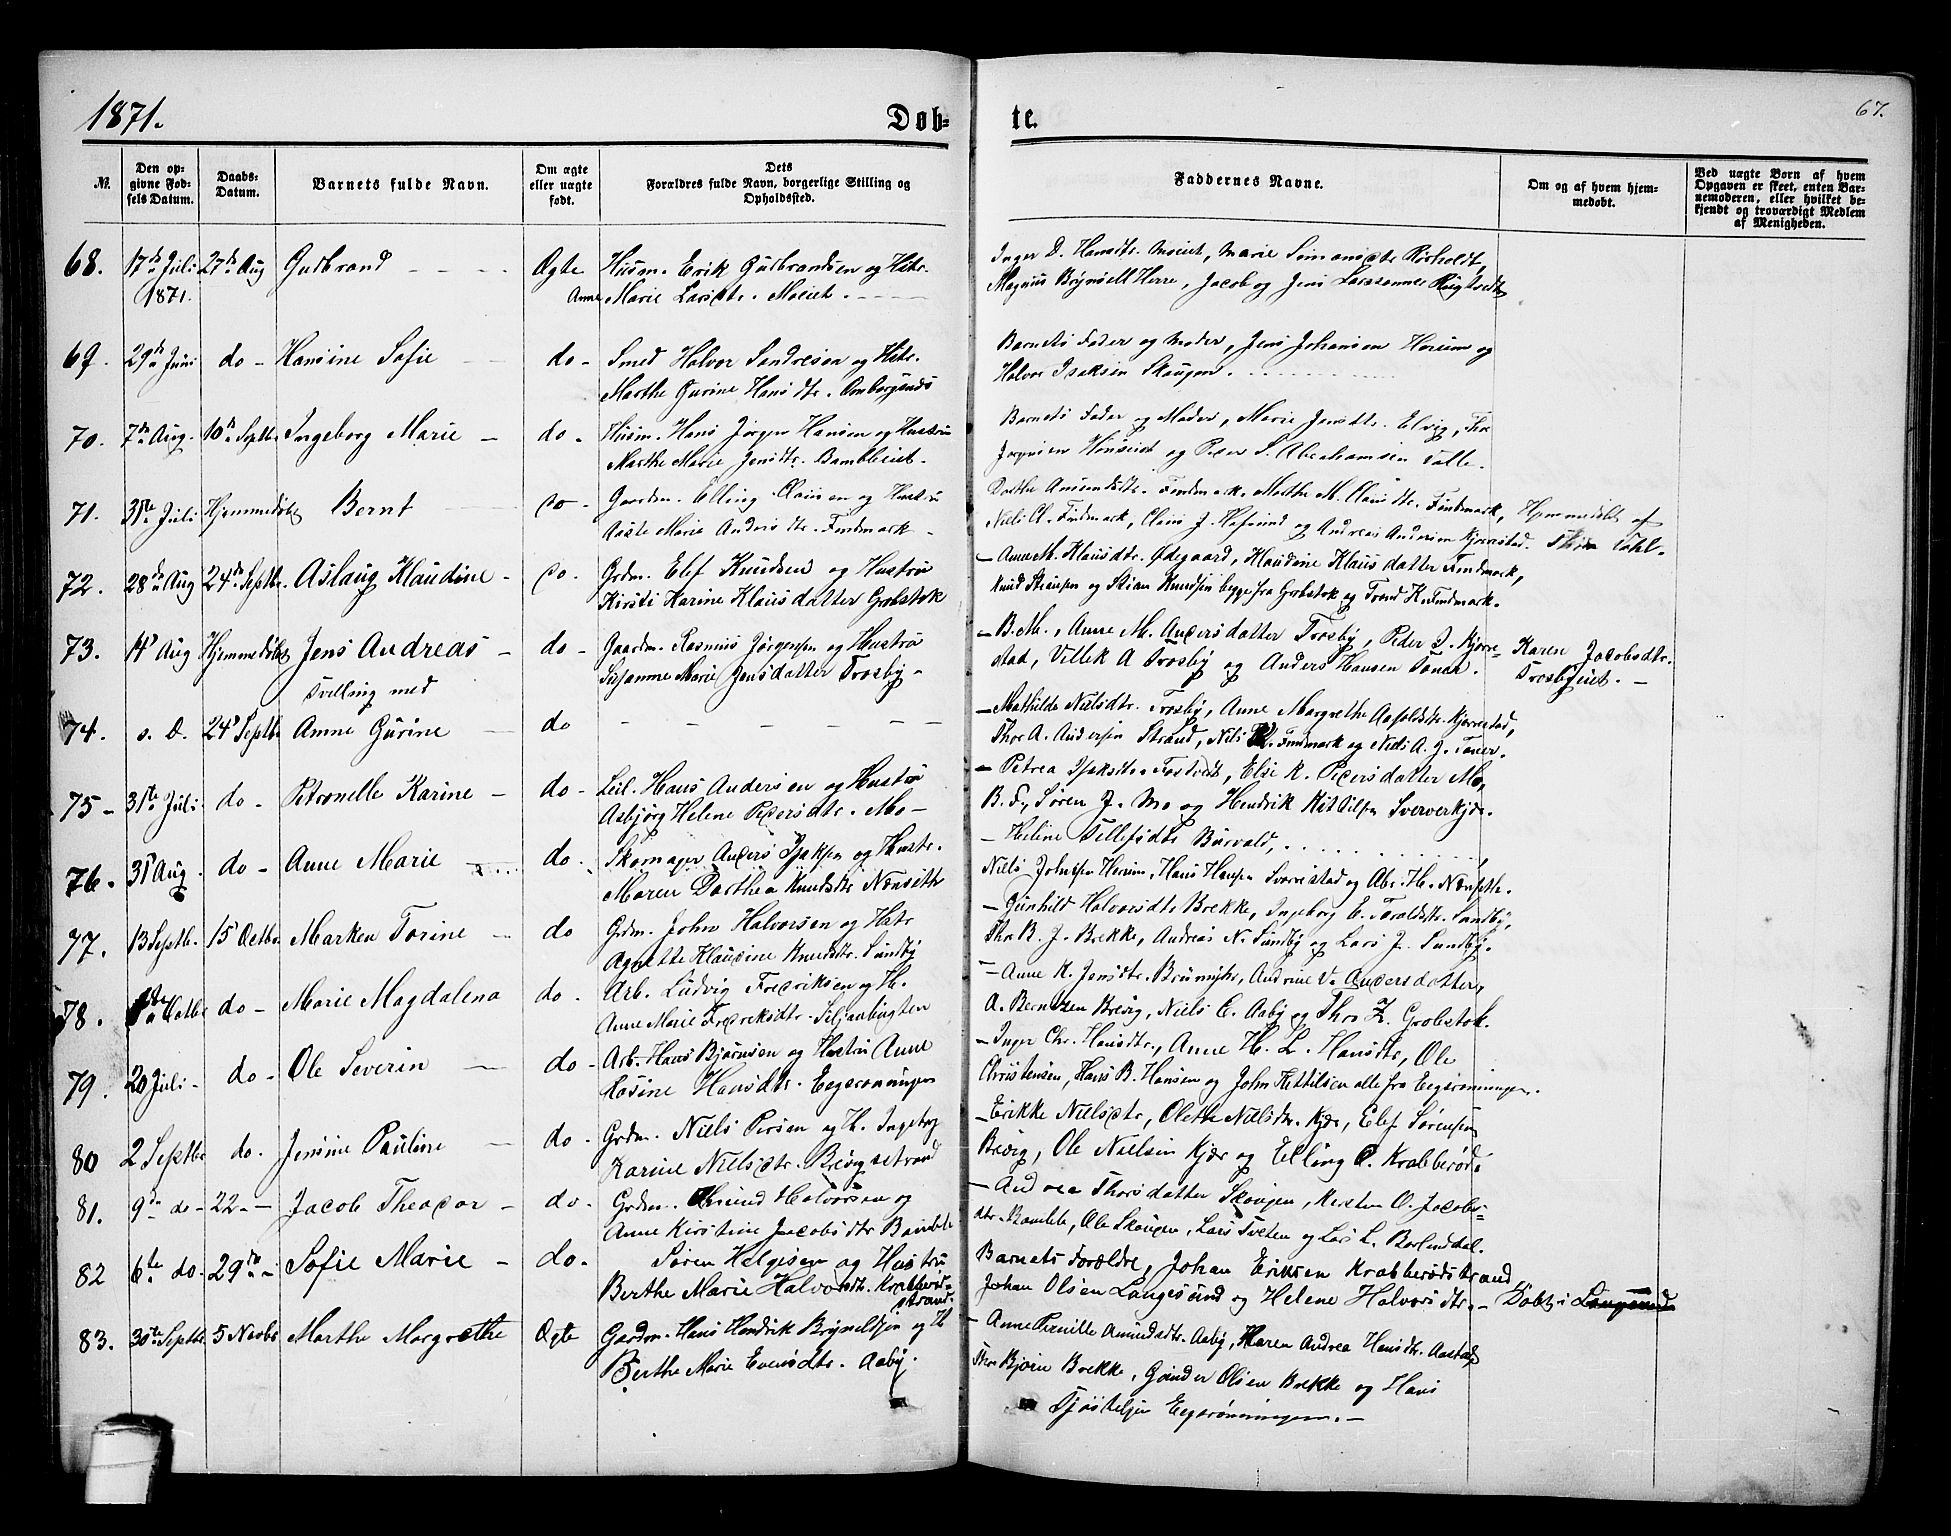 1871.
Døb=
te.
67.
№.
Den op-
givne Fød-
sels Datum.
Daabs-
Datum.
Barnets fulde Navn.
Om ægte
eller uægte
født.
Dets
Forældres fulde Navn, borgerlige Stilling og
Opholdssted.
Faddernes Navne.
Om og af hvem hjem-
medøbt.
Ved uægte Børn af hvem
Opgaven er skeet, enten Bar-
nemoderen, eller hvilket be-
kjendt og troværdigt Medlem
af Menigheden.
68. 17de Juli 27de Aug Gudbrand Ægte Husm. Erik Gudbrandsen og Hstr.
1871. Anne Marie Larsdtr.
Inger D. Hansdtr. Marie Simonsdtr Rørholdt,
Magnus Brynsell Herre, Jacob og Jens Larssønner
69. 29de Juni do - Hansine Sofie do - Smed Halvor Sondresen og Hstr.
Marthe Gurine Hansdtr.
Barnets Fader og Moder, Jens Johansen Herum og
Halvor Isaksen Skougen.
70. 7de Aug. 10de Septbr Ingeborg Marie - do - Husm. Hans Jørgen Hansen og Hustru
Marthe Marie Jensdtr. Bambleiet.
Barnets Fader og Moder, Marie Jensdtr. Elvig, Thr
og Peder S. Abrahamsen Valle.
71. 31te Juli Hjemmedøbt Bernt do - Gaardm. Elling Clausen og Hustru
Marie Andersdtr. Findmark -
Dorthe Amundsdtr. Findmark. Marthe M. Clausdtr. Findmark,
Niels Cl. Findmark, Claus J. Hafsund og Andreas Andersen Kjørrestad.
Hjemmedøbt af
72. 28de Aug 24de Septbr. Aslaug Klaudine - do. Grdm. Elef Knudsen og Hustru
Kirsti Karine Klausdatter Grobstok
- Anne M. Klausdtr. Ødegaard, Klaudine Klausdatter Findmark,
og Stian Knudsen begge fra Grobstok og Trond K. Findmark.
73. 14d Aug Hjemmedøbt Jens Andreas - do - Gaardm. Rasmus Jørgensen og Hustru
Tvilling med Susanne Marie Jensdatter Trosby -
- B. M., Anne M. Andersdatter Trosby, Peder J. Kjørre=
stad, Villek A Trosby og Anders Hansen Tonar.
Karen Jacobsdtr.
Trosbyeiet. -
74. s. D. 24d Septbr Anne Gurine do
- Mathilde Nielsdtr. Trosby, Anne Margrethe Kjørrestad,
Thor A. Andersen Strand, Nils Findmark og Niels A. J. Toner.
75 - 31te Juli do - Petronelle Karine - do - Leil. Hans Andersen og Hustru
Asbjørg Helene Pedersdtr. Mo -
- Petrea Isaksdtr. Tostvedt, Else K. Pedersdatter Mo,
B. F., Søren J. Mo og Hendrik Kittilsen Sververkjær.
76. 31d Aug. do - Anne Marie do. Skomager Anders Isaksen og Hustr.
Maren Dorthea Knudsdtr Nenseth
- Heline Tellefsdtr Burvald,
Niels Johnsen Herum, Hans Hansen og Abr. H. Nenseth.
77. 13 Septb. 15d Octbr Marken Torine do Grdm. John Halvorsen og Hstr
Agnette Klausine Knudsdtr. Sundby
- Gunhild Halvorsdtr Brekke, Ingeborg E. Taraldsdtr. Sundby,
Thr B. J. Brekke, Andreas N. Sundby og Lars J. Sundby.
78. Octbr do - Marie Magdalena do. Arb. Ludvig Fredriksen og H.
Anne Marie Fredreksdtr. Seljanbugten
- Anne K. Jensdtr. Andrine V. Andersdatter,
A. Berntsen Brevig, Niels C. Aaby og Thor Z. Grobstok.
79. 20 Juli - do - Ole Severin do - Arb. Hans Bjørnsen og Hustru Anne
Rosine Hansdtr. Eegsrønningen
- Inger Chr. Hansdtr., Anne H. L. Hansdtr, Ole
Christensen, Hans B. Hansen og John Kettilsen alle fra Eegsrønningen.
80 2 Septbr do. Jensine Pauline do. Grdm. Niels Persen og H. Ingeborg
Karine Nielsdtr. Brevigsstrand
- Erikke Nielsdtr, Olethe Nielsdtr. Kjær, Elef Sørensen
Brevig, Ole Nielsen Kjær og Elling C. Krabberød.
81. 9de do - 22 - Jacob Theodor - do. Grdm. Amund Halvorsen og
Anne Kirstine Jacobsdtr Bamble
- Andrea Thorsdatter Skougen, Kirsten O. Jacobs=
dtr. Bamble, Ole Skougen, Lars Tveten og Lars L. Borlinddal.
82 6te do. 29de - Sofie Marie - do. Søren Helgesen og Hustru
Berthe Marie Halvorsdtr. Krabberød-
strand.
Barnets Forældre, Johan Eriksen Krabberødstrand
Johan Olsen Langesund og Helene Halvorsdtr. - Døbt i Langesund
83. 30te Septbr 5 Novbr Marthe Margrethe Ægte Gardm. Hans Hendrik Brynildsen og H
Berthe Marie Evensdtr. Aaby.
- Anne Pernille Amundsdtr. Aaby, Karen Andrea Hansdtr. Aastad,
Bjørn Brekke, Gunder Olsen Brekke og Hans
Eegsrønningen. -